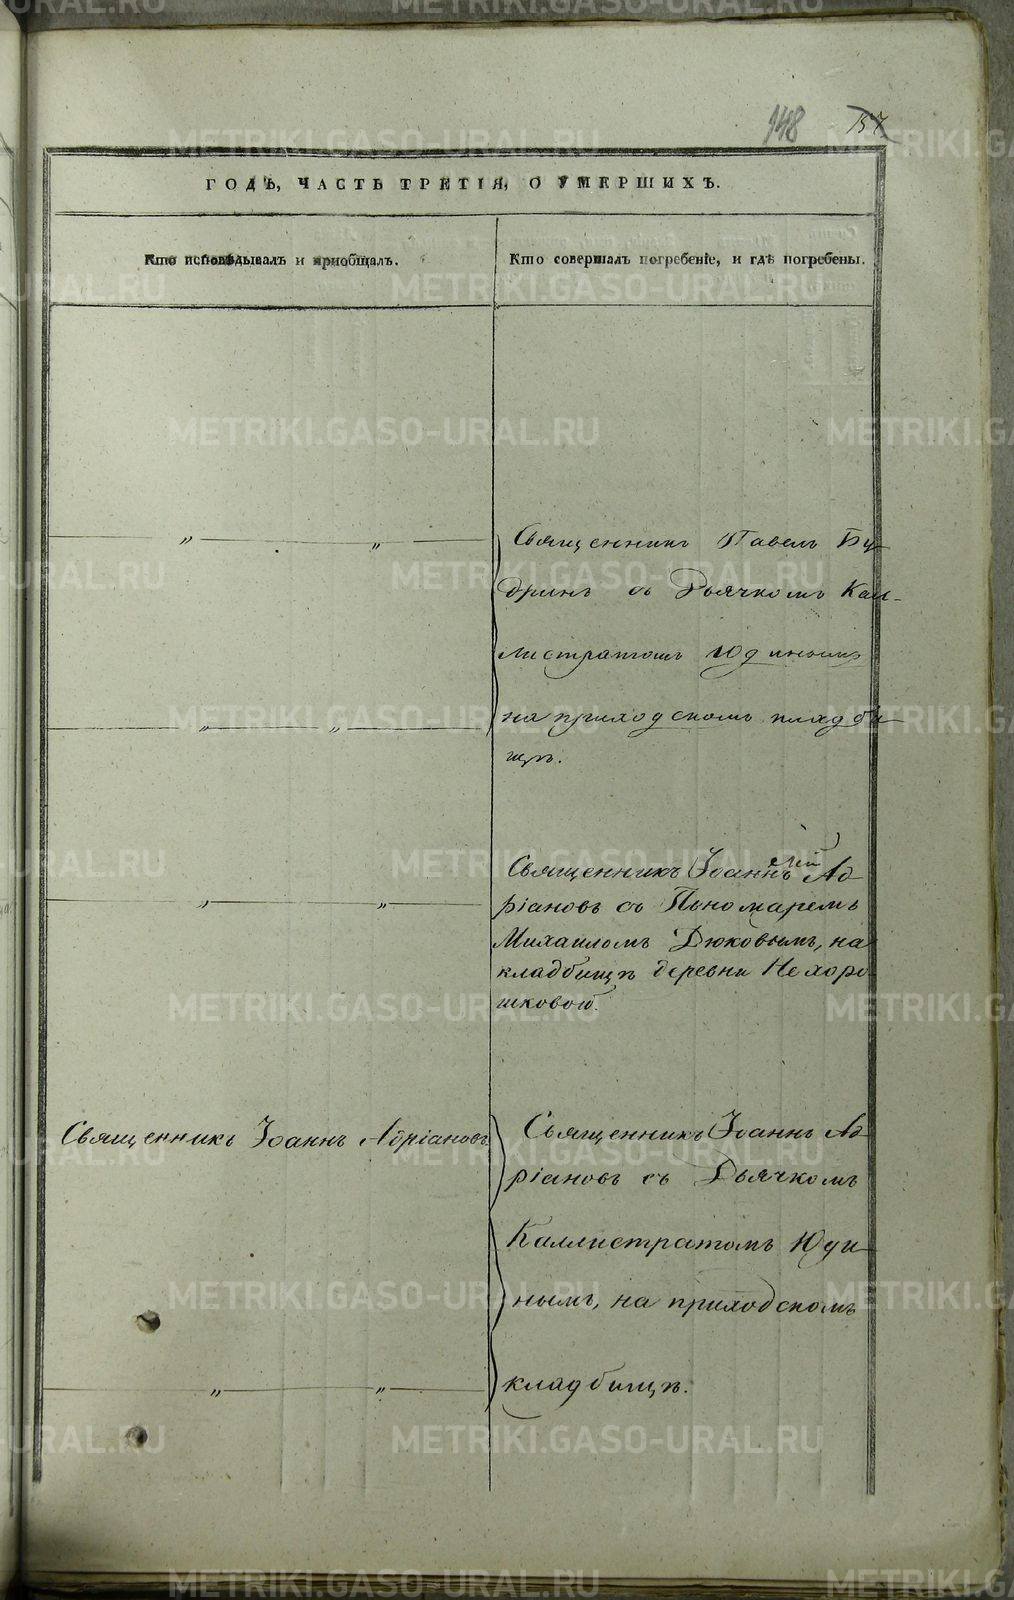 148 157
ГОДЪ, ЧАСТЬ ТРЕТІЯ, О УМЕРШИХЪ.
Кто исповѣдывалъ и пріобщалъ.
Кто совершалъ погребеніе, и гдѣ погребены.
" "
Священникъ Павелъ Бу-
дринъ съ Дьячкомъ Кал-
листратомъ Юдинымъ
на приходскомъ кладби-
щѣ.
" "
" "
Священникъ Іоаннъ Ад
ріановъ съ Пономаремъ
Михаиломъ Дюковымъ, на
кладбищѣ деревни Нехоро-
шковой.
Священникъ Іоаннъ Адріановъ
Священникъ Іоаннъ Ад
ріановъ съ Дьячкомъ
Каллистратомъ Юди-
нымъ, на приходскомъ
кладбищѣ.
" "
METRIKI.GASO-URAL.RU